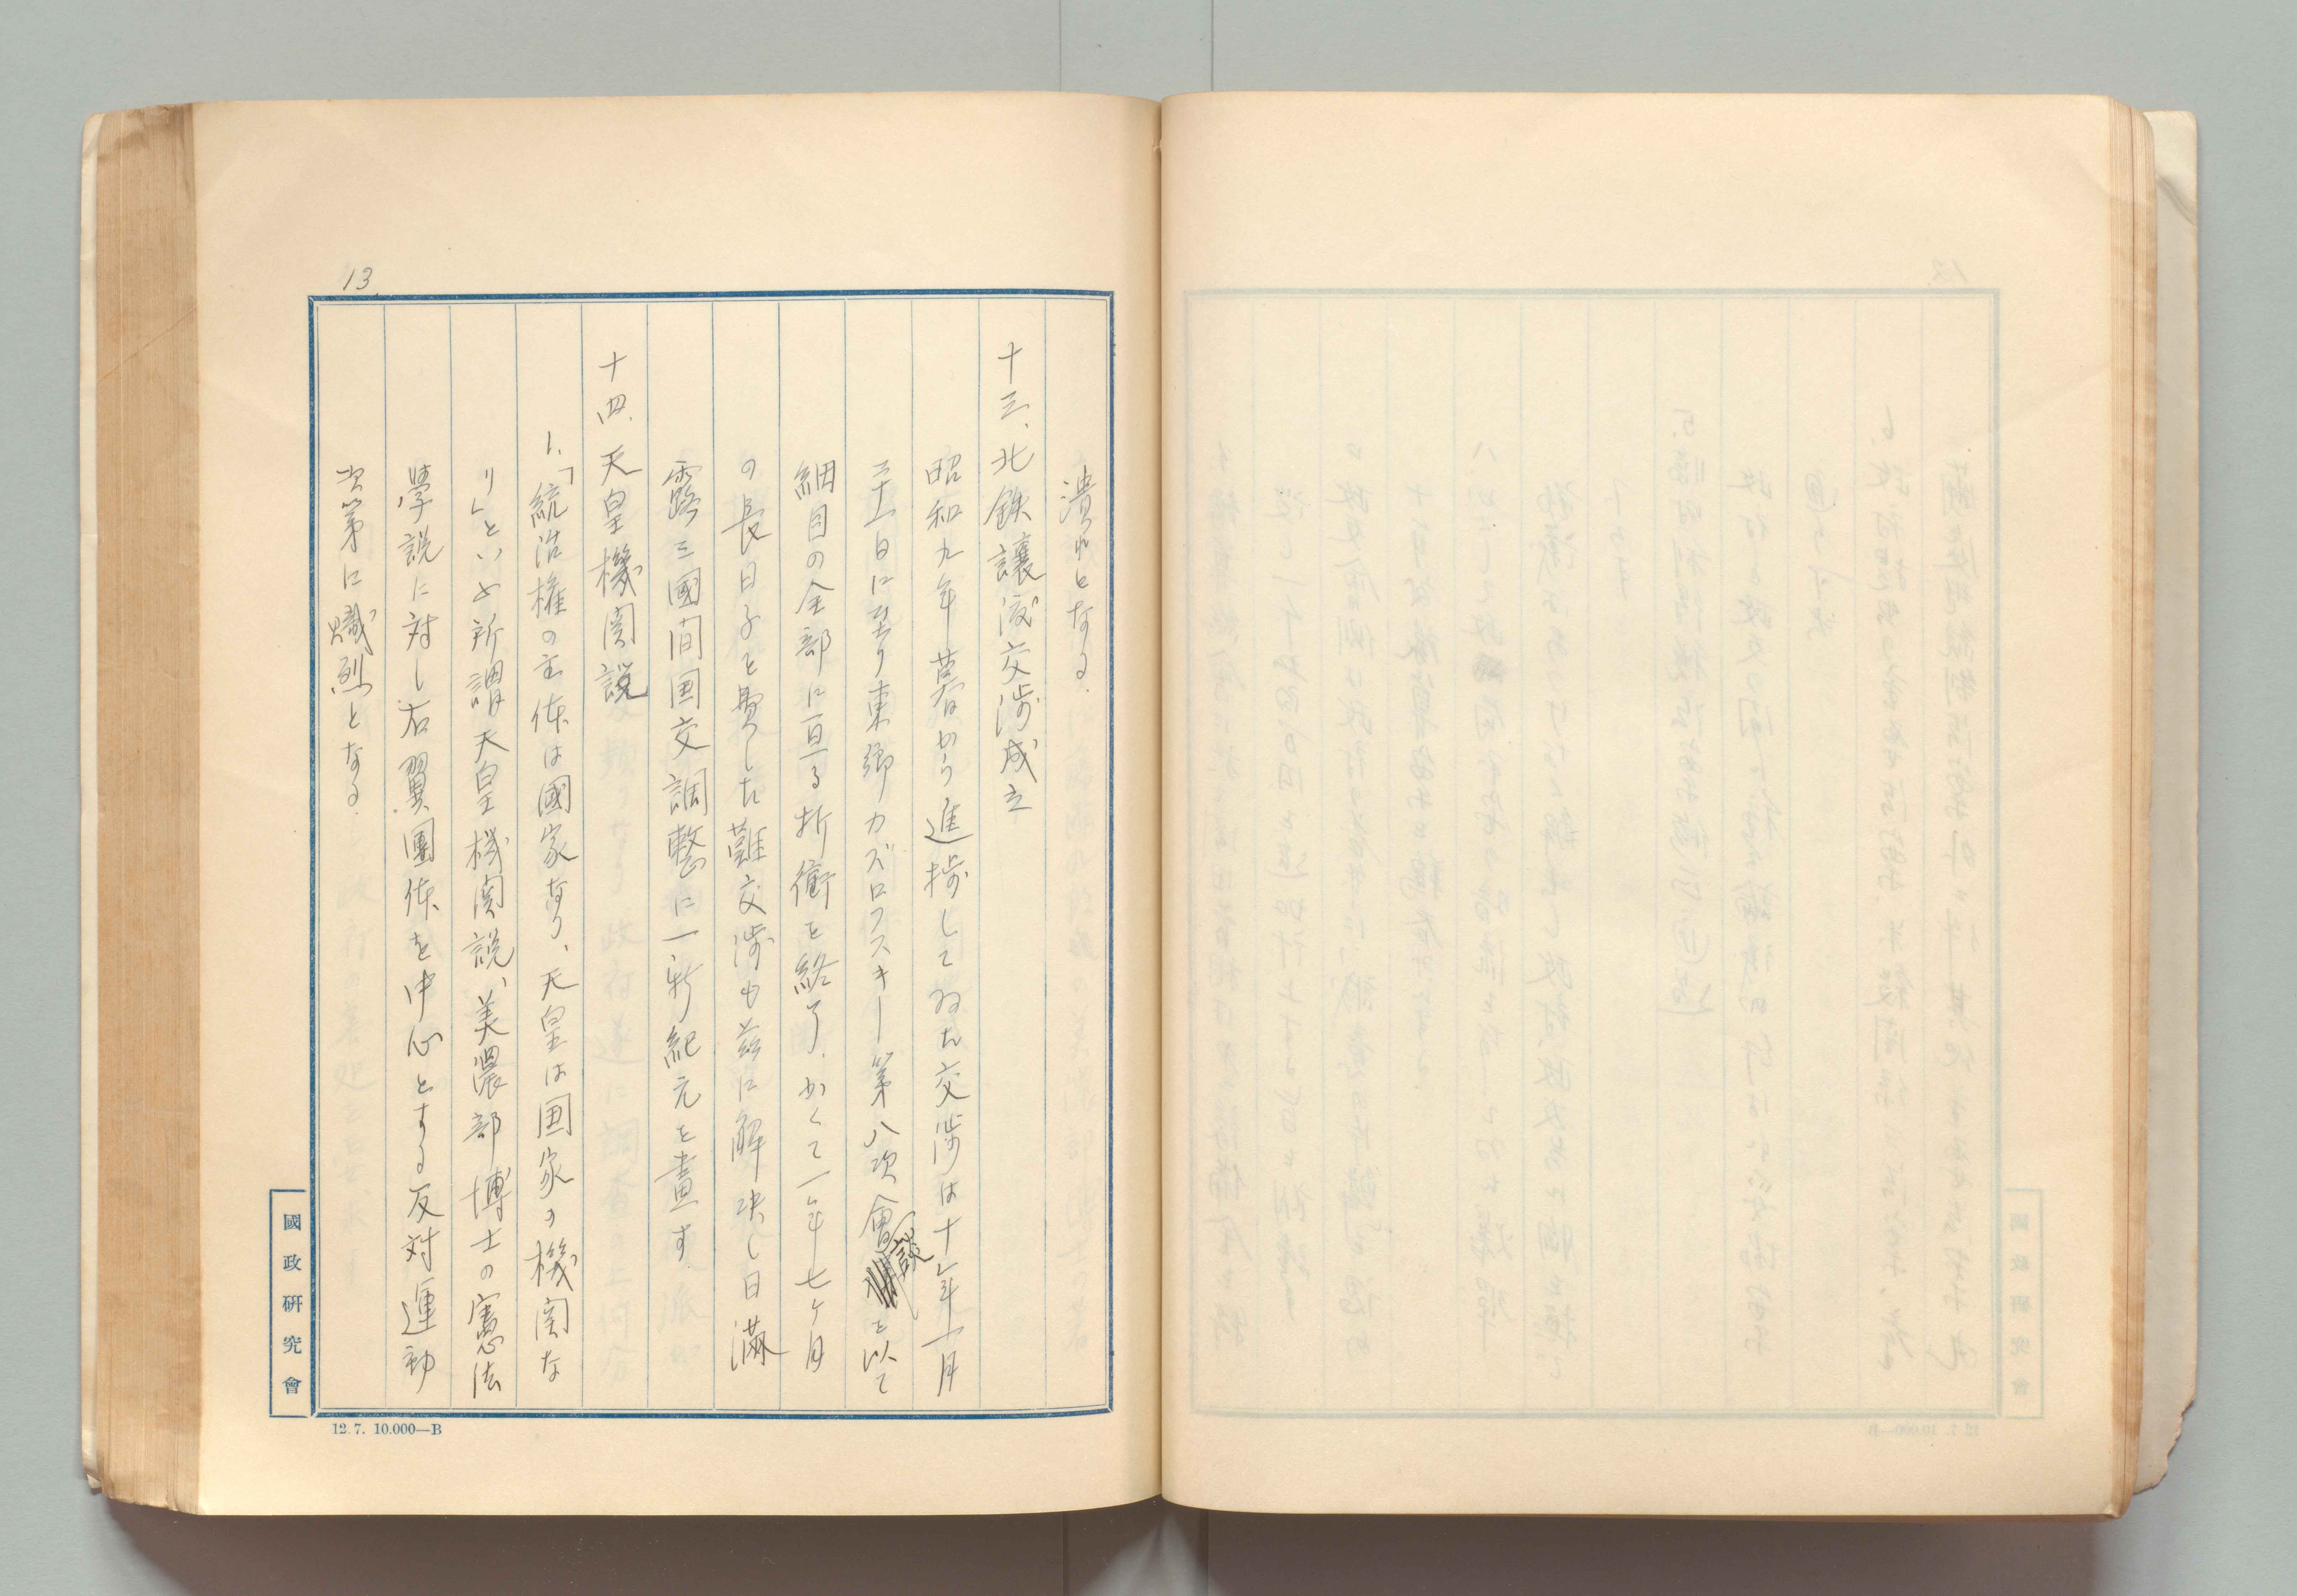 13
潰れとなる.
十三、北鉄讓渡交渉成立
昭和九年暮から進捗してゐた交渉は十年一月
二十一日に至り東郷カズロフスキー第八次會談を以て
細目の全部に亘る折衝を終了.かくて一年七ヶ月
の長日子を費した難交渉も茲に解決し日満
露三國間国交調整に一新紀元を畫す.
十四.天皇機関説
1.「統治権の主体は國家なり、天皇は国家の機関な
り」といふ所謂天皇機関説、美濃部博士の憲法
學説に対し右翼團体を中心とする反対運動
次第に熾烈となる.
國政研究會
12.7. 10.000—B